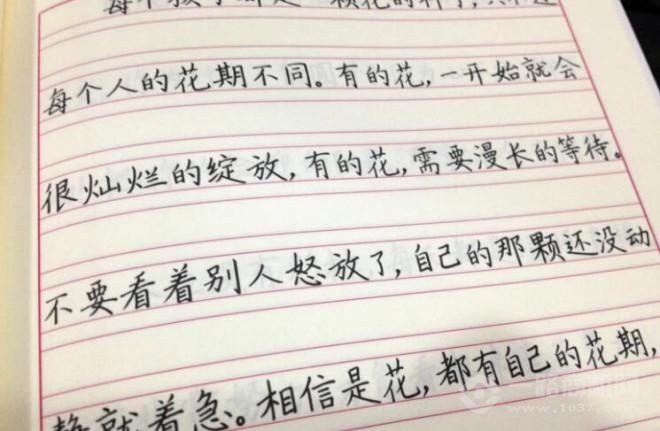 每个孩子都是一颗花的种子,只不过
每个人的花期不同。有的花,一开始就会
很灿烂的绽放,有的花,需要漫长的等待。
不要看着别人怒放了,自己的那颗还没动
静就着急。相信是花,都有自己的花期,
www.1637.com